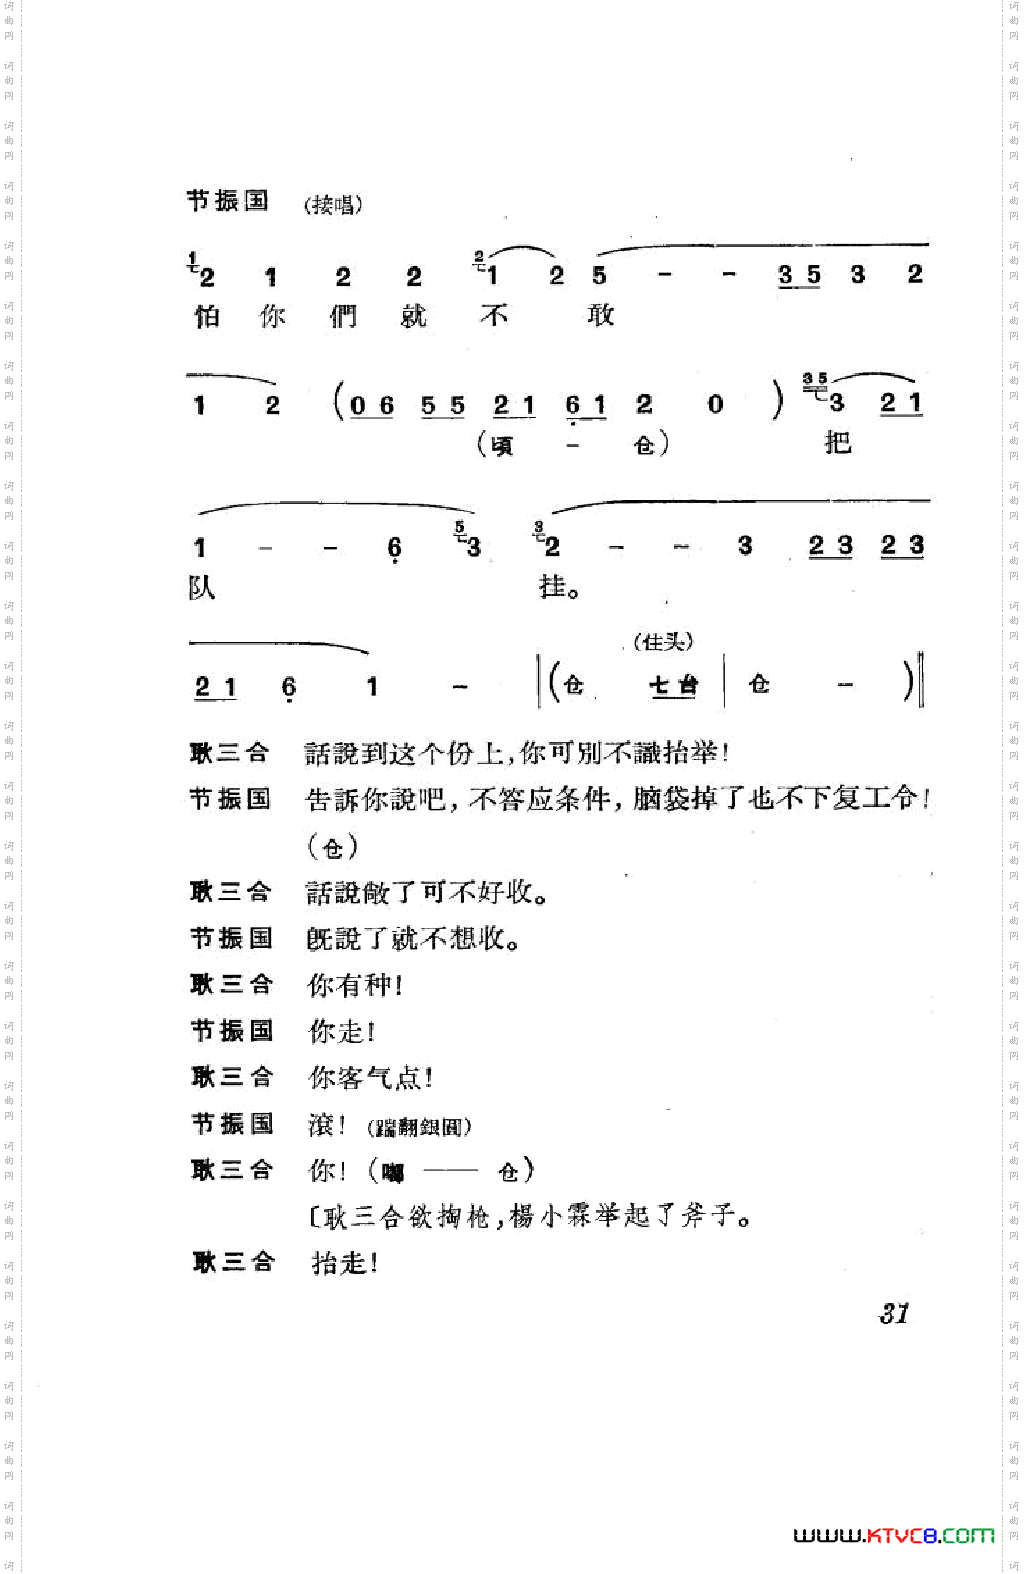 节振国 (接唱)
1 2 1 2 2 2 1 2 5 - - 3 5 3 2
怕 你 們 就 不 敢
1 2 (0 6 5 5 2 1 6 1 2 0 ) 35 3 2 1
(頃 - 仓) 把
1 - - 6 5 3 3 2 - - 3 2 3 2 3
队 挂。
(住头)
2 1 6 1 - ‖(仓 七台 | 仓 - )‖
耿三合 話說到这个份上,你可別不識抬举!
节振国 告訴你說吧,不答应条件,脑袋掉了也不下复工令!
(仓)
耿三合 話說敞了可不好收。
节振国 旣說了就不想收。
耿三合 你有种!
节振国 你走!
耿三合 你客气点!
节振国 滾!(踹翻銀圓)
耿三合 你!(嘟 —— 仓)
〔耿三合欲掏枪,楊小霖举起了斧子。
耿三合 抬走!
31
WWW.KTVC8.COM